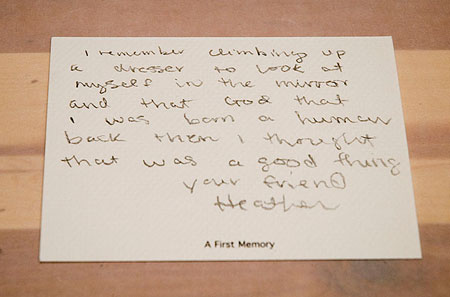 I remember climbing up
a dresser to look at
myself in the mirror
and that God that
I was born a human
back then I thought
that was a good thing
your friend
Heather
A First Memory